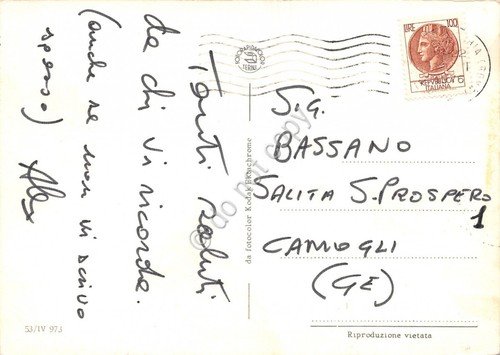 Tanti saluti
da chi vi ricorda.
(anche se non vi scrivo
spesso)
Alex
S.G.
BASSANO
SALITA S. PROSPERO
1
CAMOGLI
(GE)
LIRE 100
REPUBBLICA
ITALIANA
TERNI
da fotocolor Kodak Ektachrome
do not copy
53/IV 973
Riproduzione vietata